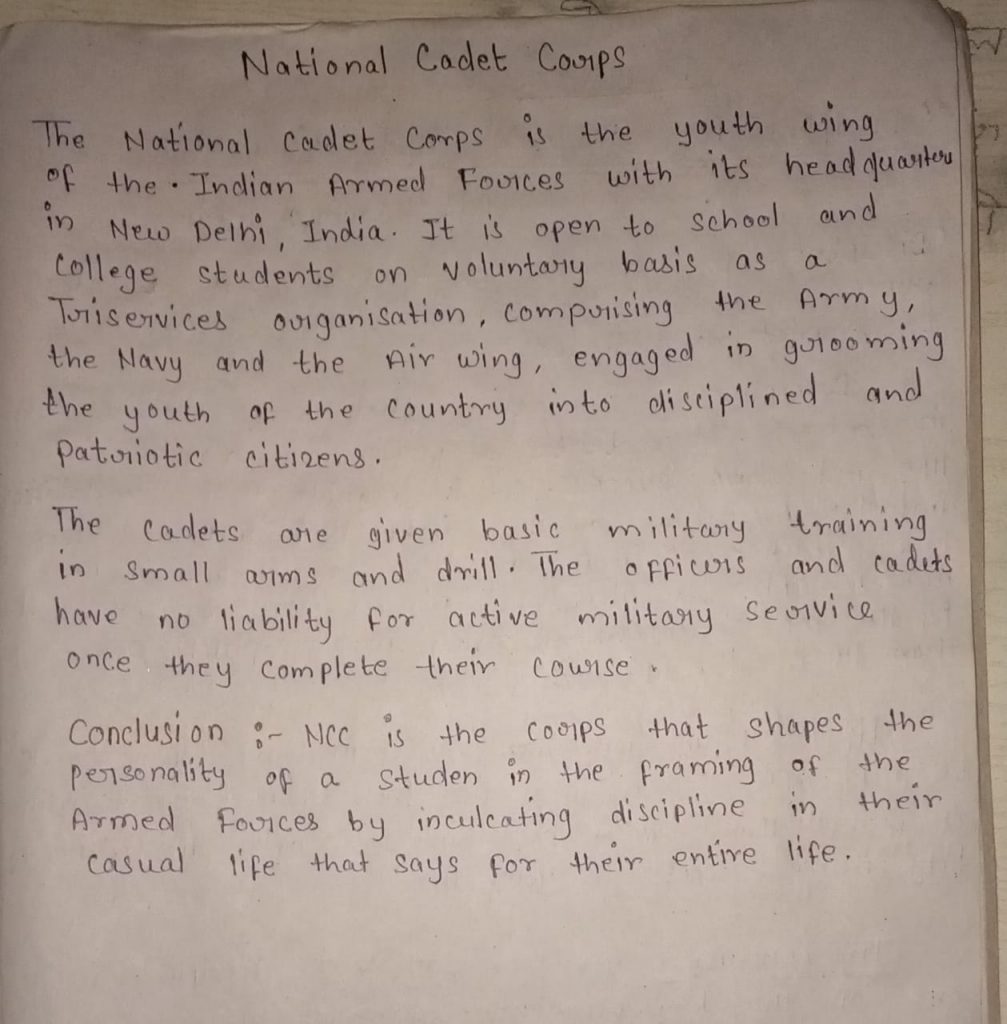 National Cadet Corps
The National Cadet Corps is the youth wing
of the Indian Armed Forces with its headquarters
in New Delhi, India. It is open to school and
College students on voluntary basis as a
Triservices organisation, comprising the Army,
the Navy and the Air wing, engaged in grooming
the youth of the country into disciplined and
patriotic citizens.
The cadets are given basic military training
in small arms and drill. The officers and cadets
have no liability for active military service
once they complete their course.
Conclusion :- NCC is the corps that shapes the
personality of a studen in the framing of the
Armed Forces by inculcating discipline in their
casual life that says for their entire life.